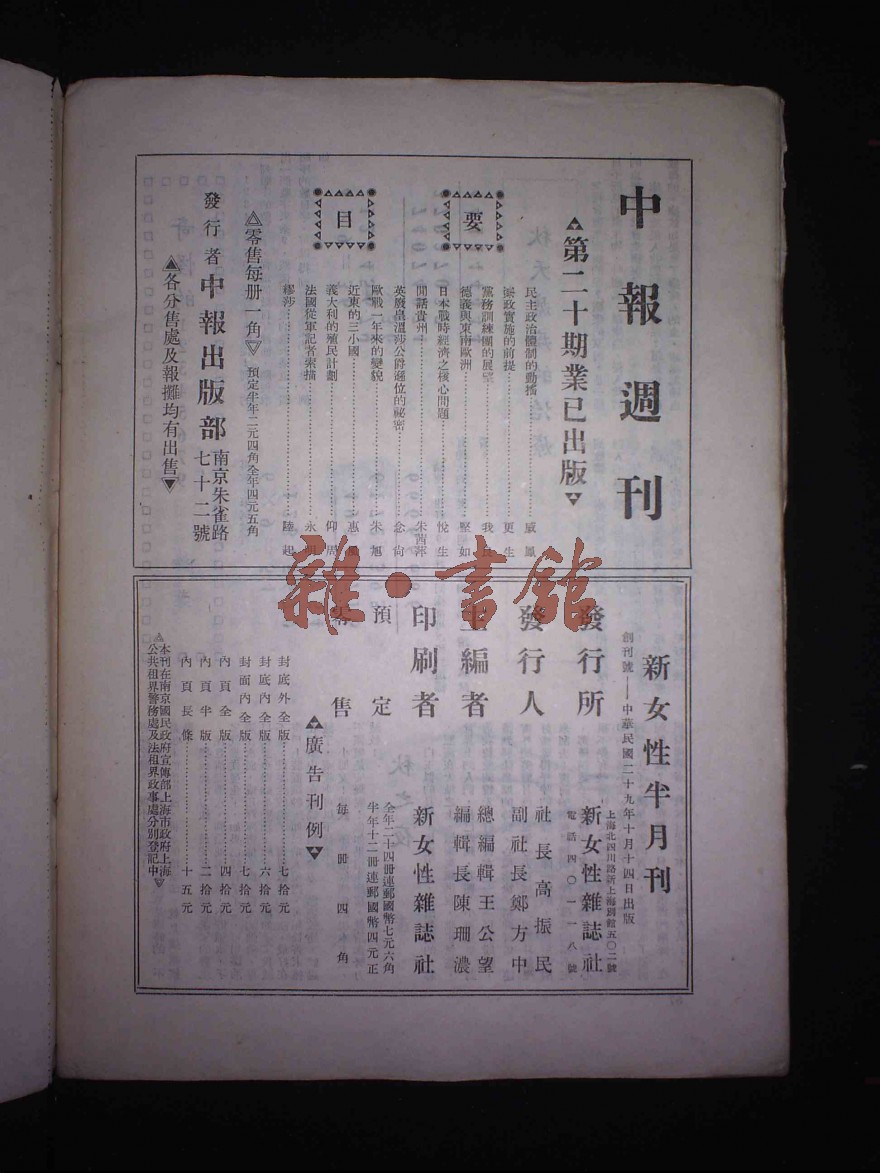 中報週刊
第二十期業已出版
要目
民主政治體制的動搖 威鳳
憲政實施的前提 更生
黨務訓練團的展望 我
德義與東南歐洲 堅如
日本戰時經濟之核心問題 悅生
閒話貴州 朱茜萍
英廢皇溫莎公爵遜位的祕密 念尙
歐戰一年來的變貌 朱旭
近東的三小國 惠
義大利的殖民計劃 仰周
法國從軍記者素描 永明
繆莎 陸起
零售每册一角 預定半年二元四角全年四元五角
發行者 中報出版部 南京朱雀路七十二號
各分售處及報攤均有出售
新女性半月刊
創刊號——中華民國二十九年十月十四日出版
發行所 新女性雜誌社
上海北四川路新上海別館五〇二號
電話四〇一一八號
發行人 社長高振民
副社長鄭方中
主編者 總編輯王公望
編輯長陳珊濃
印刷者 新女性雜誌社
預定 全年二十四冊連郵國幣七元六角
半年十二冊連郵國幣四元正
零售 每冊四角
廣告刊例
封底外全版 七拾元
封底內全版 六拾元
封面內全版 七拾元
內頁全版 四拾元
內頁半版 二拾元
內頁長條 十五元
本刊在南京國民政府宣傳部上海市政府上海
公共租界警務處及法租界政事處分別登記中
雜·書館